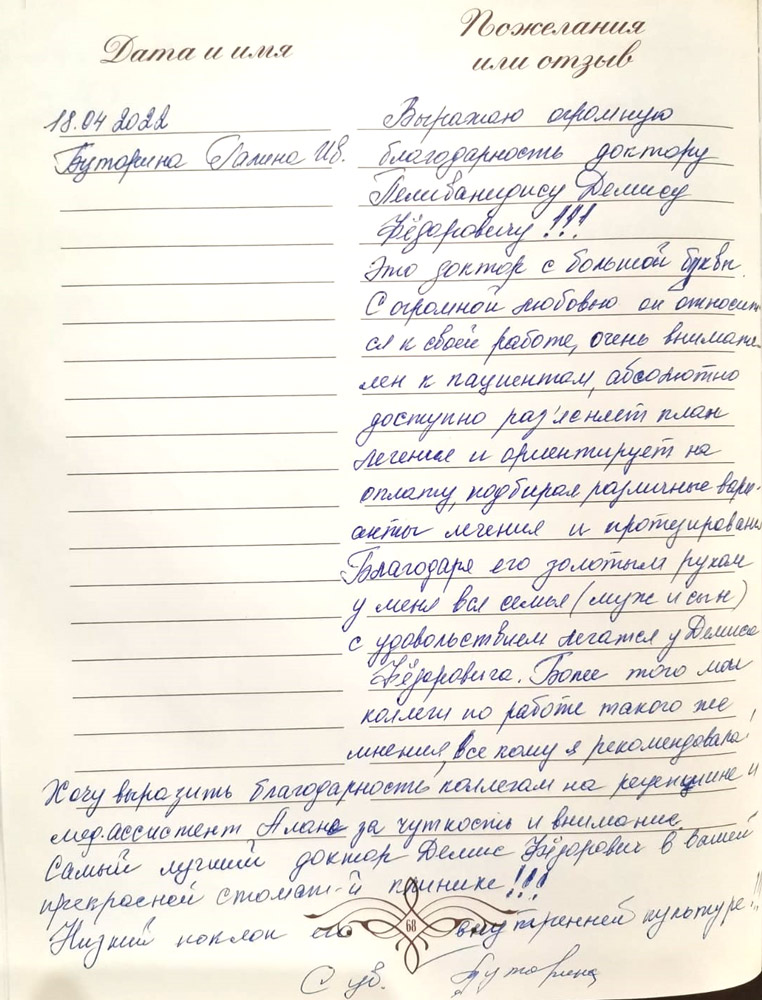 Дата и имя
Пожелания
или отзыв
18.04 2022
Буторина Галина Ив.
Выражаю огромную
благодарность доктору
Пеливанидису Демису
Фёдоровичу!!!
Это доктор с большой буквы.
С огромной любовью он относит
ся к своей работе, очень внимате
лен к пациентам, абсолютно
доступно раз'ясняет план
лечения и ориентирует на
оплату, подбирая различные вари-
анты лечения и протезирования
Благодаря его золотым рукам
у меня вся семья (муж и сын)
с удовольствием лечатся у Демиса
Фёдоровича. Более того мои
коллеги по работе такого же
мнения, все кому я рекомендовала!
Хочу выразить благодарность коллегам на рецепшине и
мед.ассистент Алане за чуткость и внимание.
Самый лучший доктор Демис Фёдорович в вашей
прекрасной стомат-й клинике!!!
Низкий поклон его внутренней культуре!!!
68
С ув. Буторина